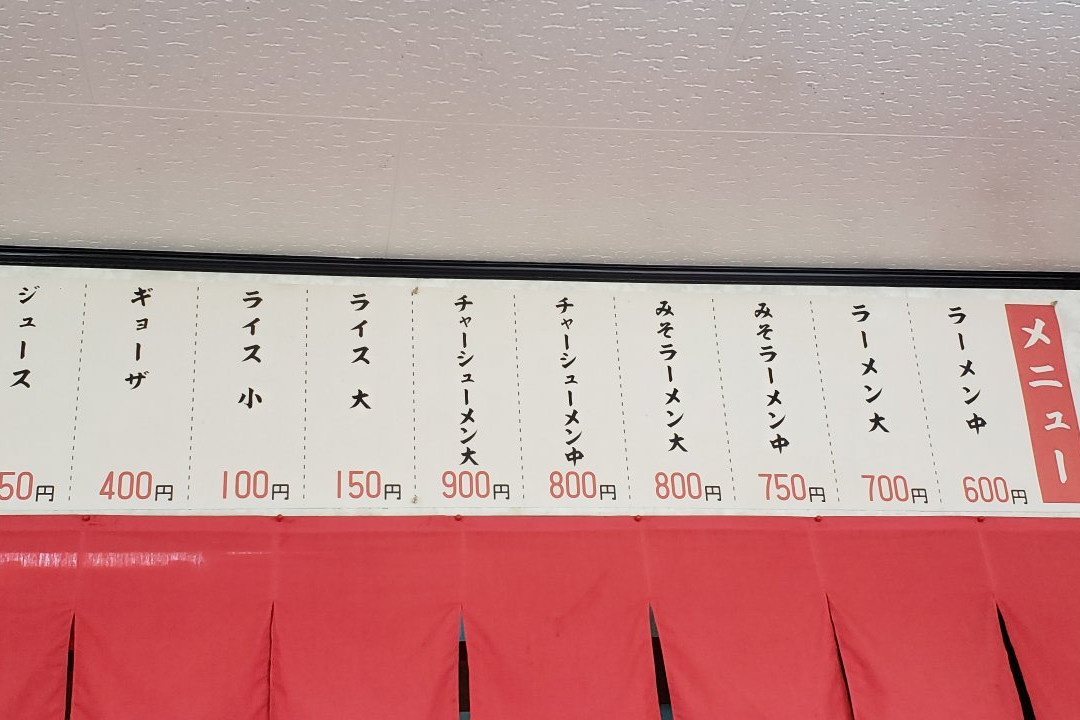 メニュー
ラーメン中
600円
ラーメン大
700円
みそラーメン中
750円
みそラーメン大
800円
チャーシューメン中
800円
チャーシューメン大
900円
ライス 大
150円
ライス 小
100円
ギョーザ
400円
ジュース
50円